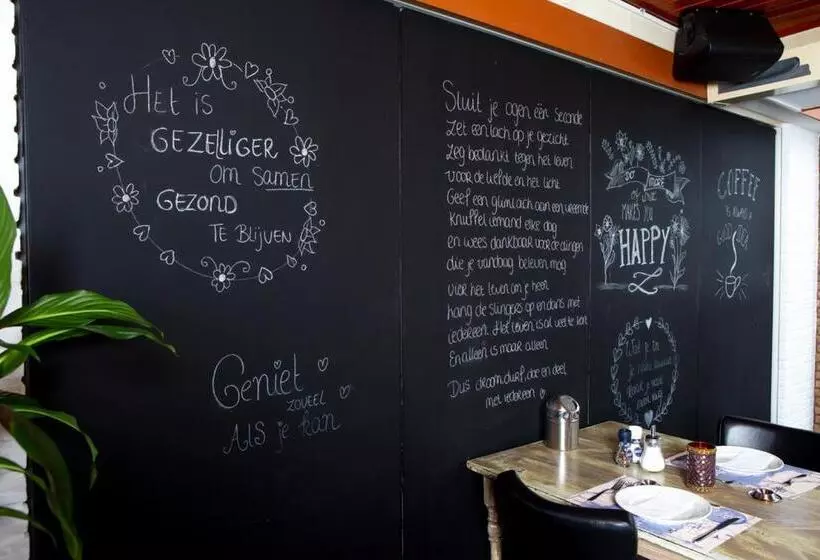 Het is
GEZELLIGER
om SAMEN
GEZOND
TE BLIJVEN
Geniet
ZOVEEL
ALS je kan
Sluit je ogen één seconde
Zet een lach op je gezicht
Zeg bedankt tegen het leven
voor de liefde en het licht
Geef een glimlach aan een vreemde
Knuffel iemand elke dag
en wees dankbaar voor de dingen
die je vandaag beleven mag
vier het leven om je heen
hang de slingers op en dans met
iedereen. Het leven is al veel te kort
En alleen is maar alleen
Dus droom, durf, doe en deel
met iedereen
DO MORE
OF What
MAKES YOU
HAPPY
COFFEE
is always a